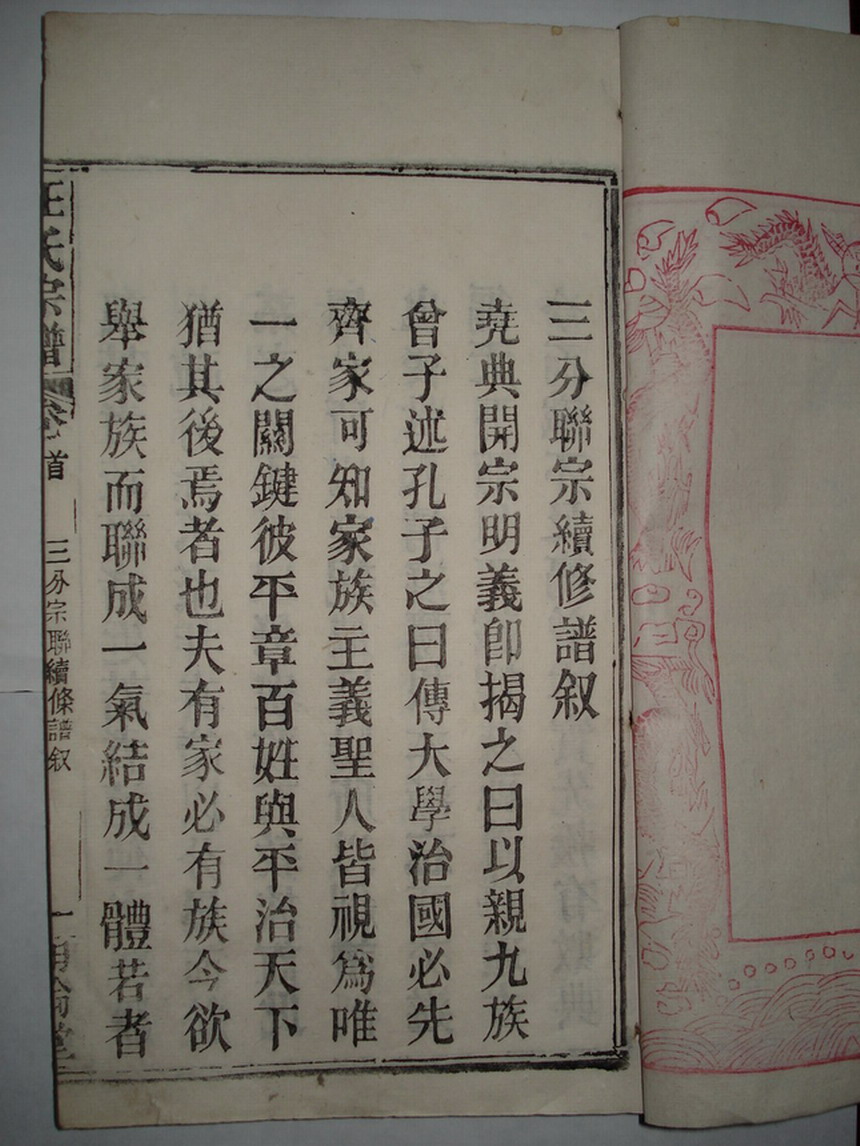 三分聯宗續修譜叙
堯典開宗明義卽揭之曰以親九族
曾子述孔子之曰傳大學治國必先
齊家可知家族主義聖人皆視爲唯
一之關鍵彼平章百姓與平治天下
猶其後焉者也夫有家必有族今欲
舉家族而聯成一氣結成一體若者
汪氏宗譜 卷首 三分宗聯續條譜叙 一 倫堂